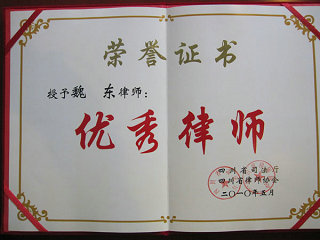 荣誉证书
授予魏 东律师:
优秀律师
四川省司法厅
四川省律师协会
二〇一〇年五月